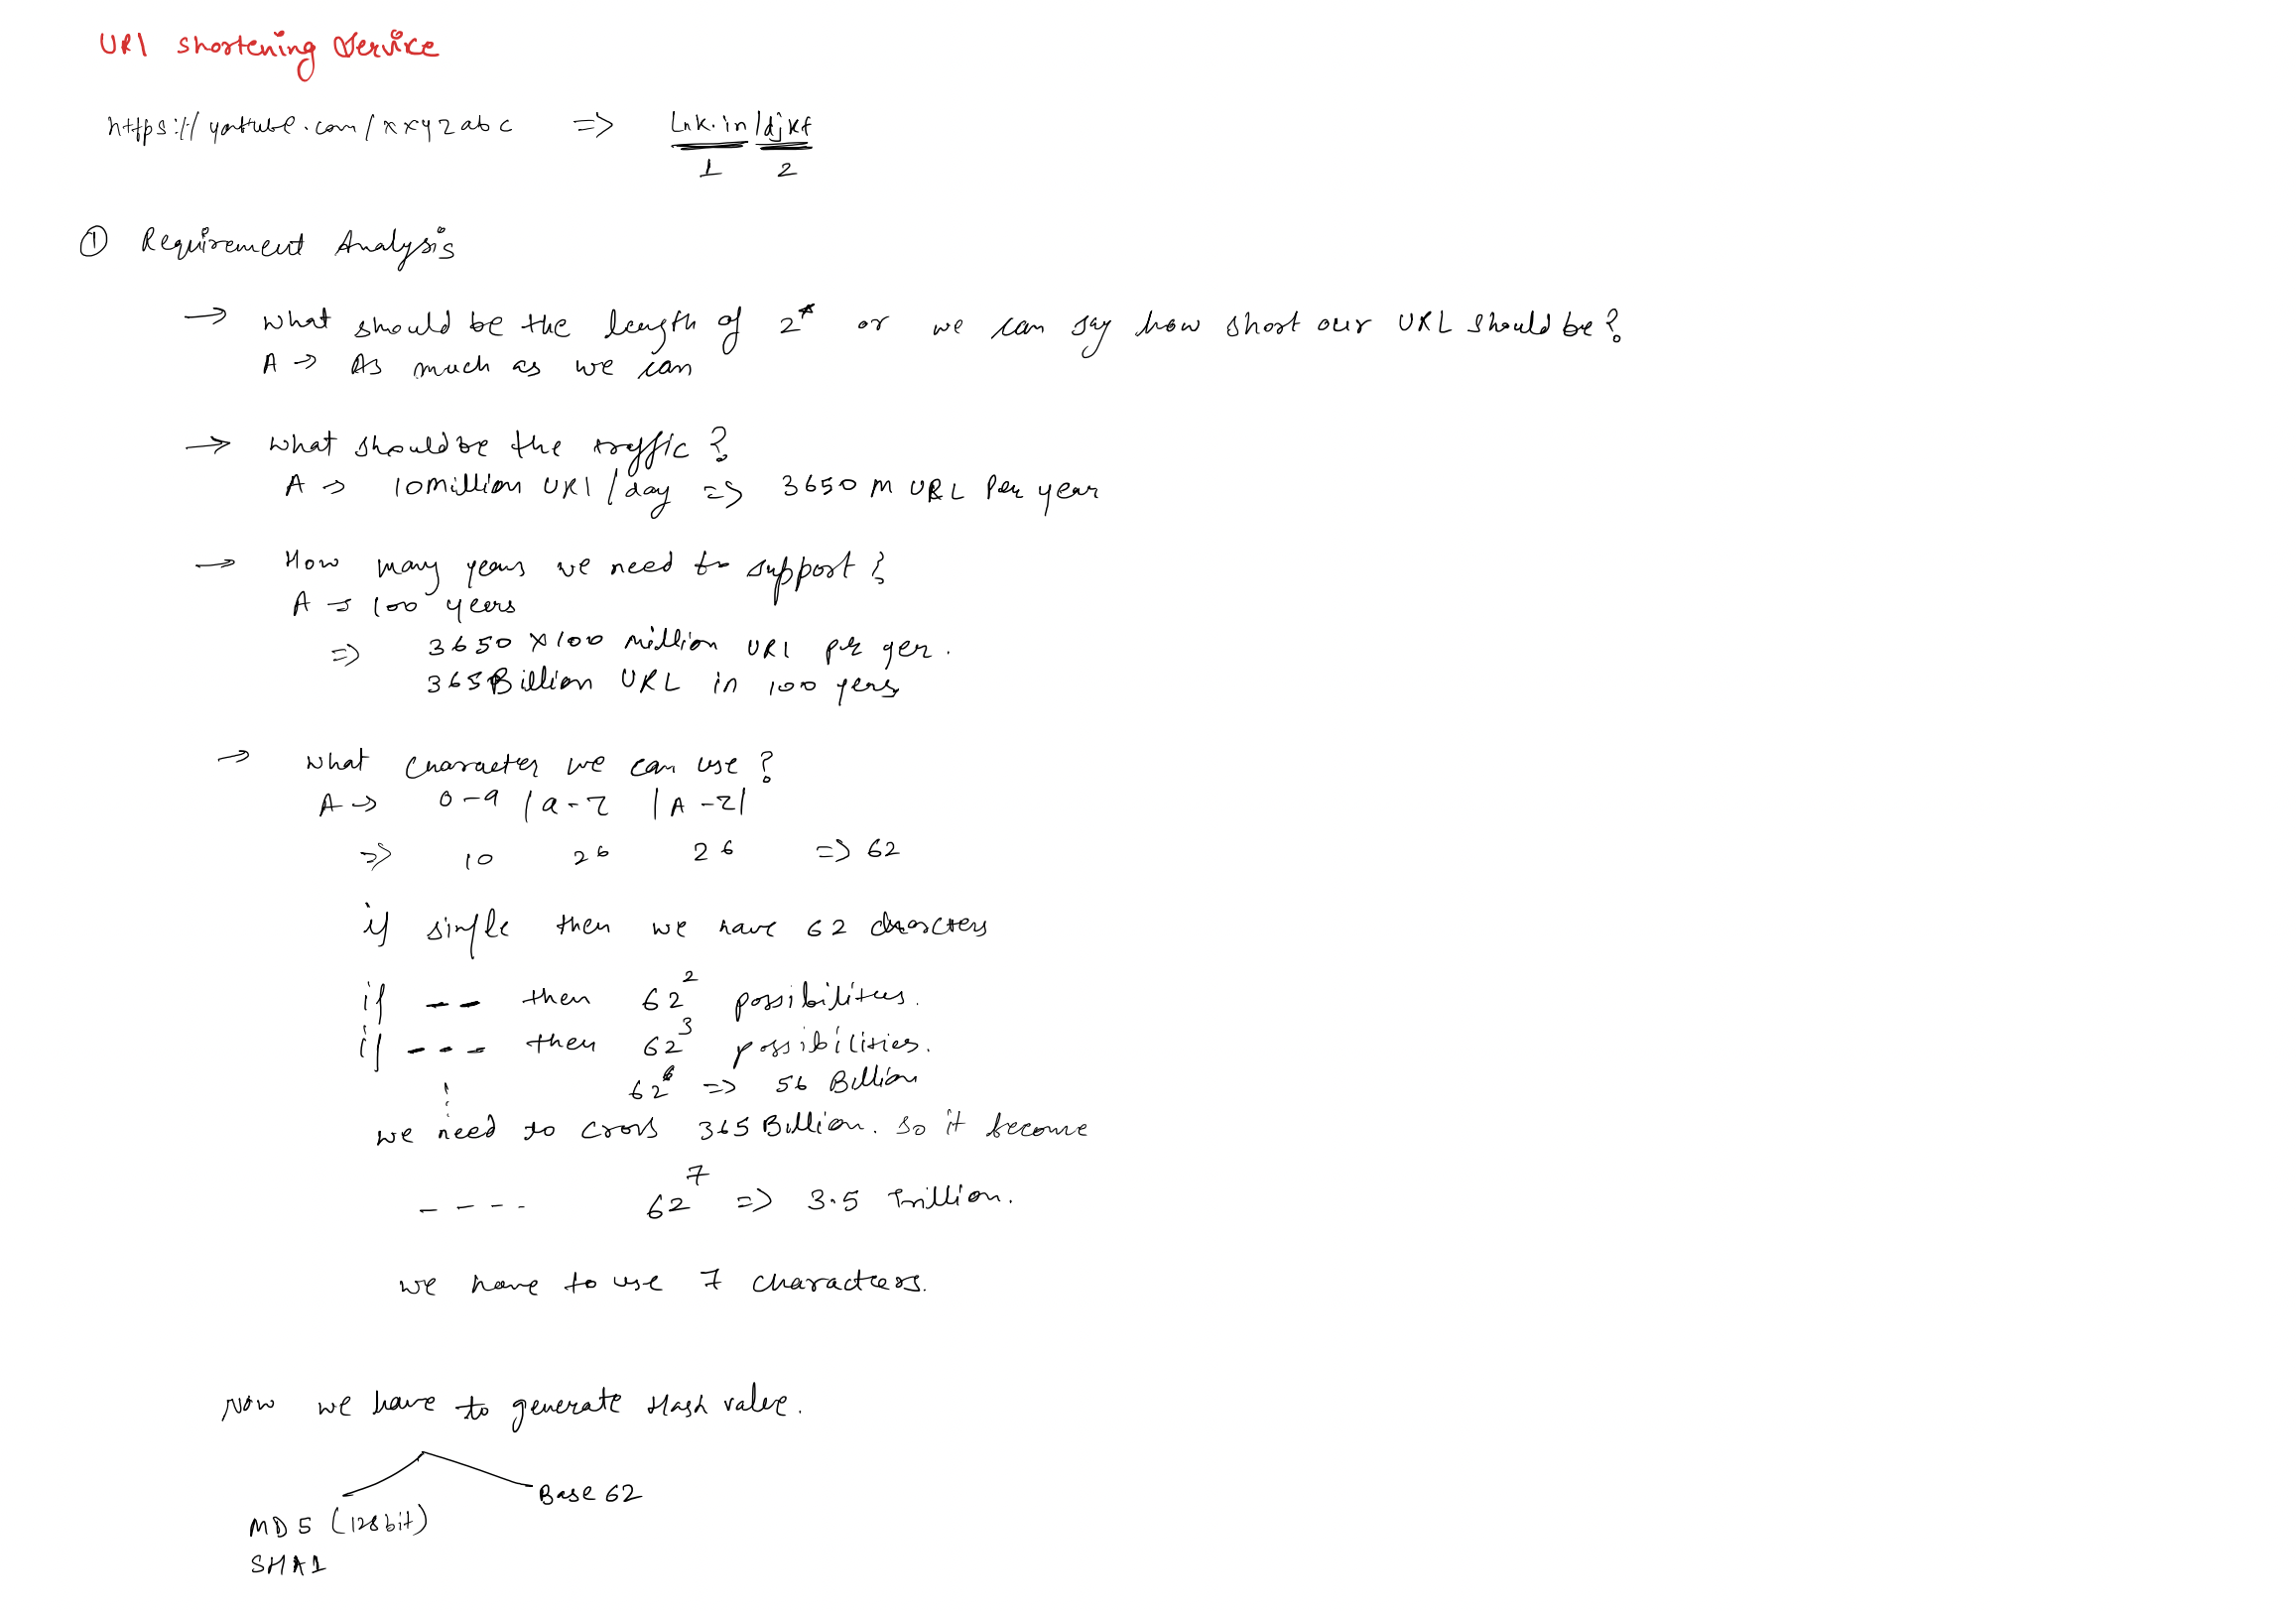 URl shortening Service
https:// youtube.com/xxyzabc => Lnk.in/djkf
1 2
① Requirement Analysis
→ what should be the length of 2* or we can say how short our URL should be?
A → As much as we can
→ what should be the traffic?
A → 10 million URl / day => 3650 M URL Per year
→ How many years we need to support?
A → 100 years
=> 3650 X 100 million URl per yer.
365 Billion URL in 100 yers
→ what character we can use?
A → 0-9 | a-z | A-Z |
=> 10 26 26 => 62
if single then we have 62 characters
if -- then 62² possibilities.
if --- then 62³ possibilities.
62⁶ => 56 Billion
we need to cross 365 Billion. so it become
---- 62⁷ => 3.5 Trillion.
we have to use 7 characters.
Now we have to generate Hash value.
Base 62
MD5 (128bit)
SHA1